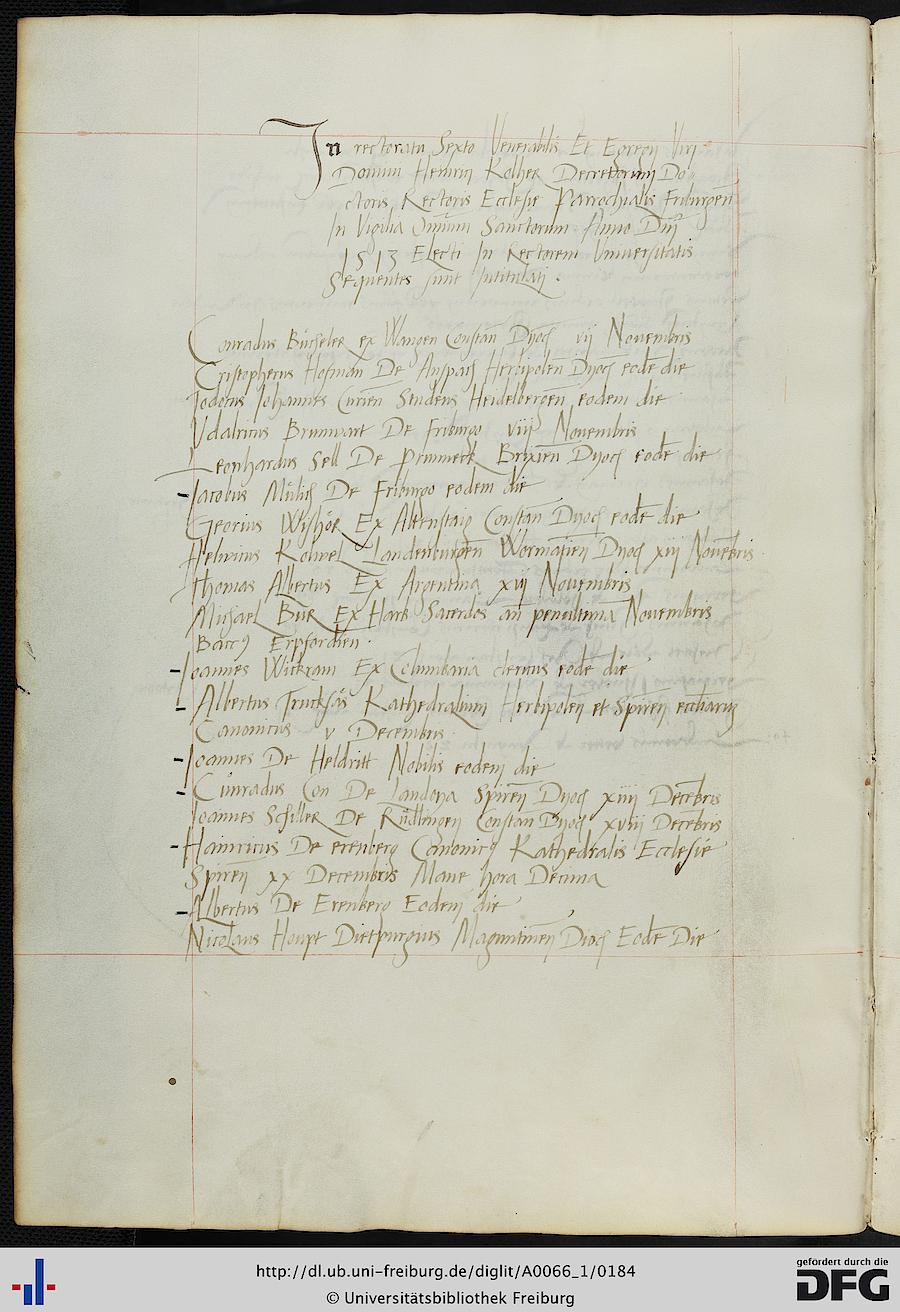 In rectoratu Sexto Venerabilis Et Egregij Viri
Domini Heinrici Kolher Decretorum Do-
ctoris Rectoris Ecclesie Parrochialis Friburgen̄
In Vigilia Omniū Sanctorum Anno Dm̄
1513 Electi In Rectorem Universitatis
Sequentes sunt Intitulati.
Conradus Bücheler ex Wangen Constan̄ Dyoc̄ vij Novembris
Cristopherus Hofman De Anspach Herbipolen̄ Dyoc̄ eodē die
Jodocus Johannes Curien̄ Studens Heidelbergen̄ eodem die
Udalricus Brunwart De Friburgo viij Novembris
Leonhardus Sell De Prunneck Brixien̄ Dyoc̄ eodē die
Jacobus Mülich De Friburgo eodem die
Georius Ex Altenstaig Constan̄ Dyoc̄ eodē die
Helwicus Landenburgen̄ Wormacien̄ Dyoc̄ xij Novēbris
Thomas Albertus Ex Argentina xij Novembris
Michael Bur Ex Hark Sacerdos penultima Novembris
Bacc9 Erpfordien̄.
Joannes Wickram Ex Columbaria clericus eodē die
Albertus Truchsäs Kathedralium Herbipolen̄ et Spiren̄ eccliarum
Canonicus v Decembris
Joannes De Heldritt Nobilis eodem die
Cůnradus Con De Landoya Spiren̄ Dyoc̄ xiiij Decēbris
Joannes Schiller De Rüdlingen Constan̄ Dyoc̄ xviij Decēbris
Hainricus De erenberg Canonic9 Kathedralis Ecclesie
Spiren̄ xx Decembris Mane hora Decima
Albertus De Erenberg Eodem die
Nicolaus Houpt Dietpurgius Maguntinen̄ Dioc̄ Eodē Die
http://dl.ub.uni-freiburg.de/diglit/A0066_1/0184
© Universitätsbibliothek Freiburg
gefördert durch die
DFG